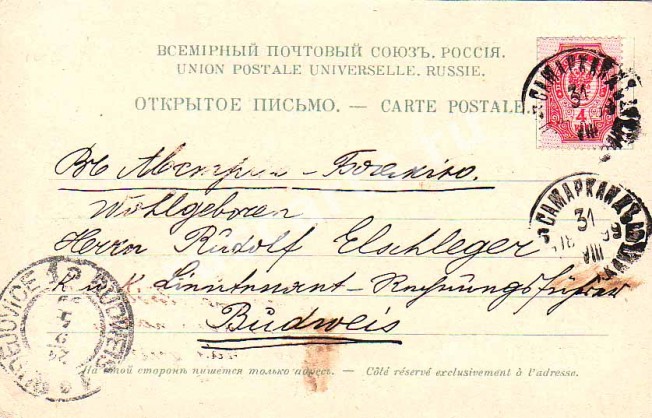 ВСЕМІРНЫЙ ПОЧТОВЫЙ СОЮЗЪ. РОССІЯ.
UNION POSTALE UNIVERSELLE. RUSSIE.
ОТКРЫТОЕ ПИСЬМО. — CARTE POSTALE.
САМАРКАНДЪ
31
VIII
4
Въ Австрію - Богемію.
Wohlgeboren
Herrn Rudolf Elschleger
K. u. K. Lieutenant - Rechnungsführer
Budweis
САМАРКАНДЪ
31
99
VIII
BUDWEIS
BUDĚJOVICE
На этой сторонѣ пишется только адресъ. — Côté réservé exclusivement à l'adresse.